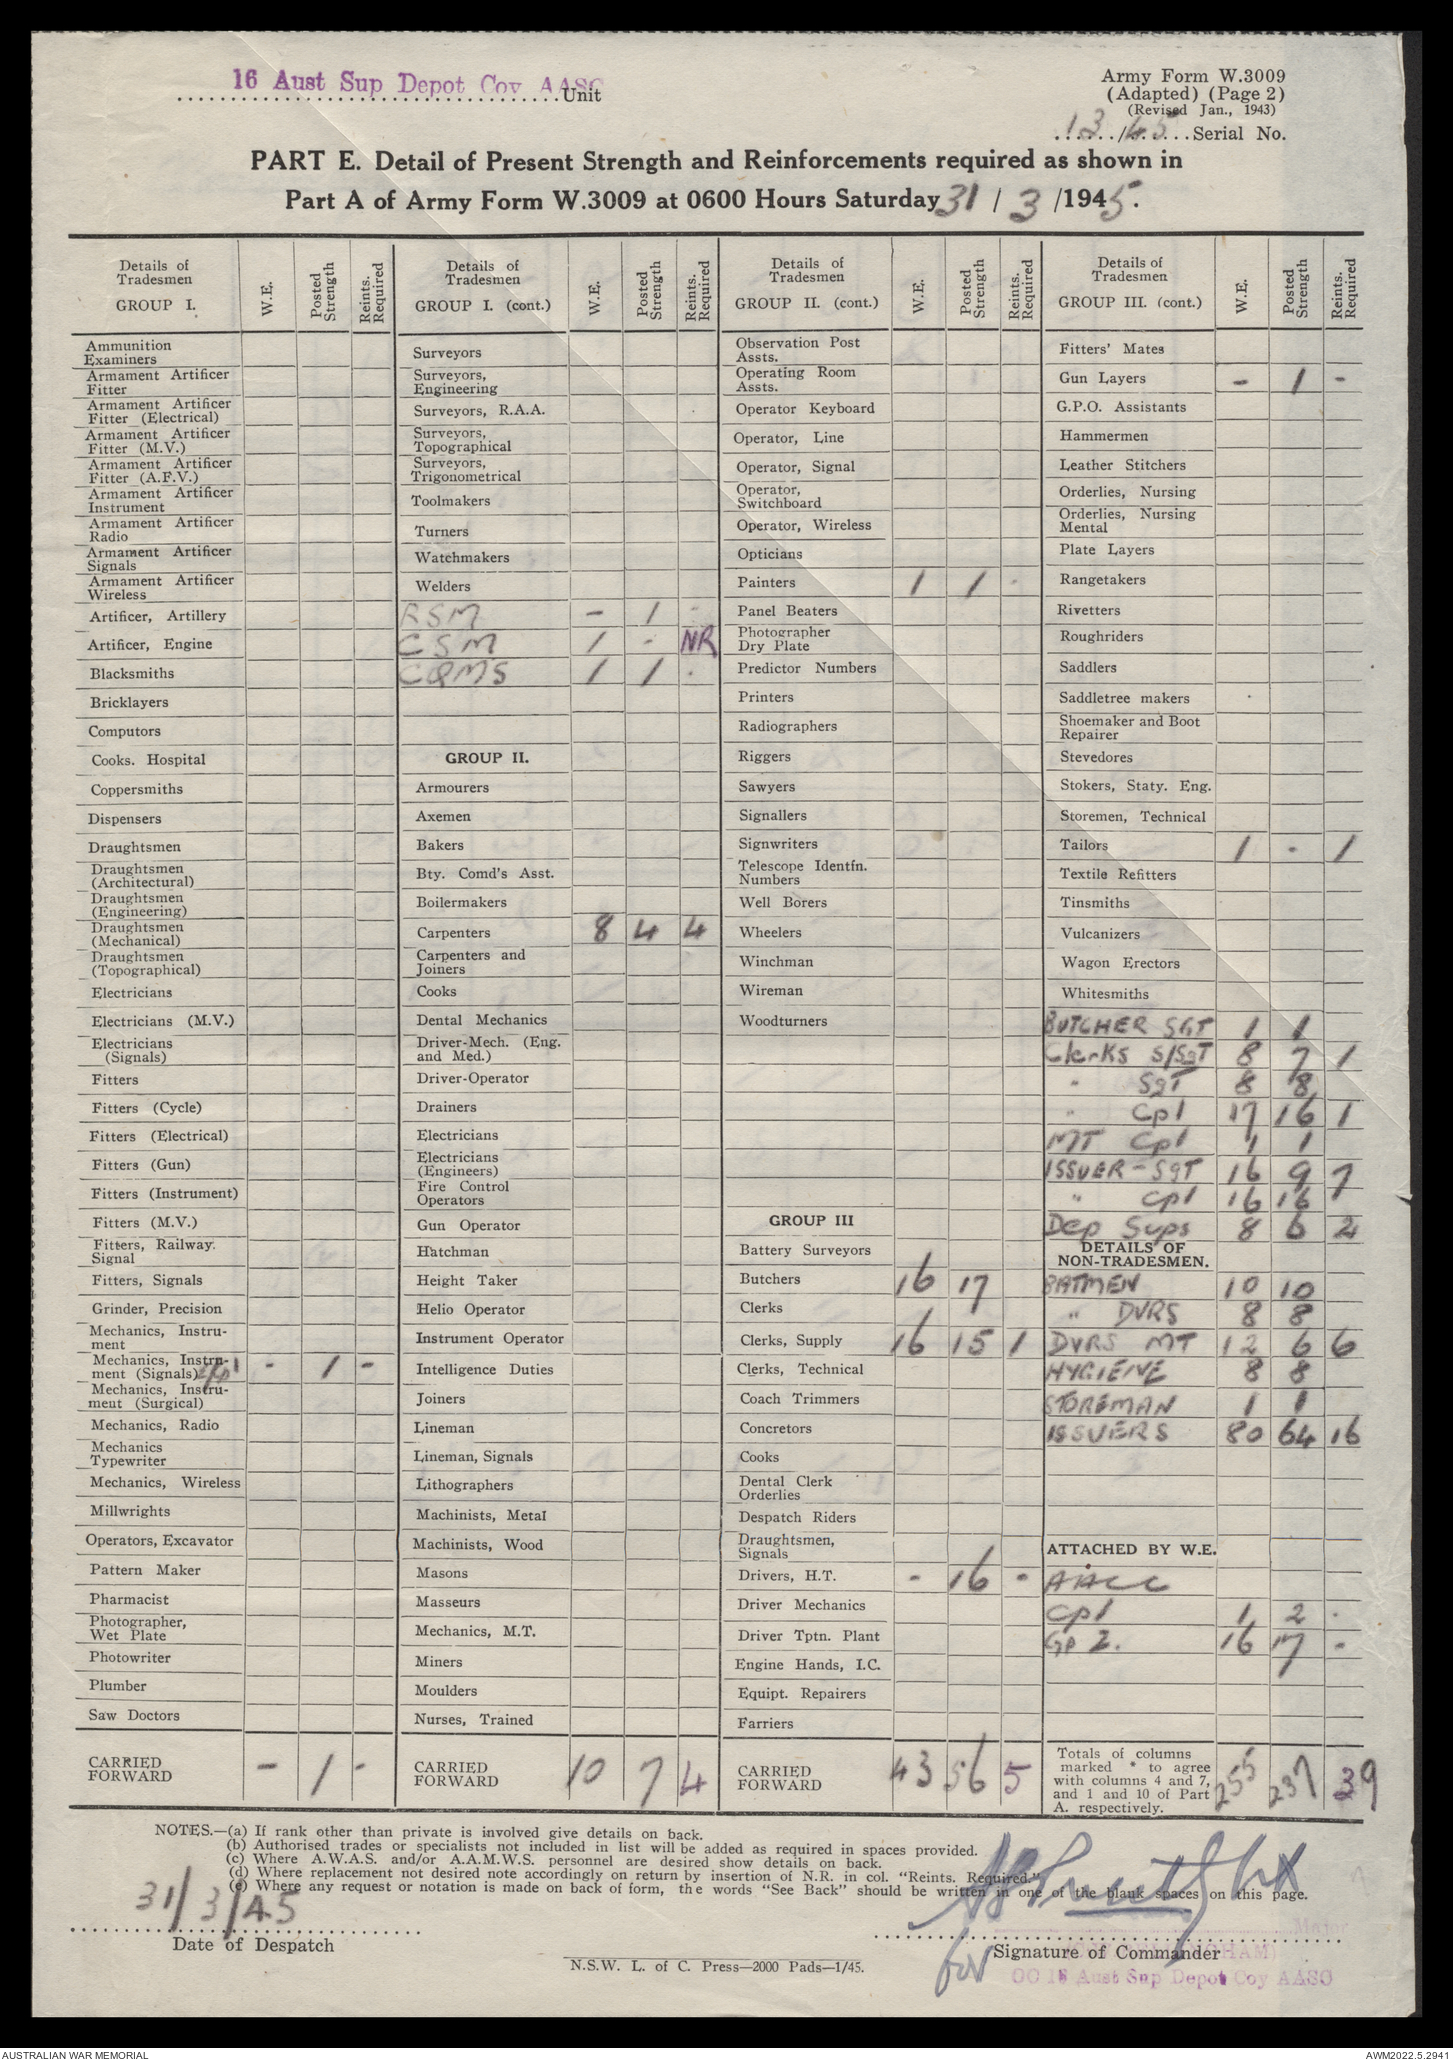 16 Aust Sup Depot Coy AASC
Unit
Army Form W.3009
(Adapted) (Page 2)
(Revised Jan., 1943)
13/45 Serial No.
PART E. Detail of Present Strength and Reinforcements required as shown in
Part A of Army Form W.3009 at 0600 Hours Saturday 31 / 3 /1945.
Details of Tradesmen GROUP I. W.E. Posted Strength Reints. Required
Ammunition Examiners
Armament Artificer Fitter
Armament Artificer Fitter (Electrical)
Armament Artificer Fitter (M.V.)
Armament Artificer Fitter (A.F.V.)
Armament Artificer Instrument
Armament Artificer Radio
Armament Artificer Signals
Armament Artificer Wireless
Artificer, Artillery
Artificer, Engine
Blacksmiths
Bricklayers
Computors
Cooks. Hospital
Coppersmiths
Dispensers
Draughtsmen
Draughtsmen (Architectural)
Draughtsmen (Engineering)
Draughtsmen (Mechanical)
Draughtsmen (Topographical)
Electricians
Electricians (M.V.)
Electricians (Signals)
Fitters
Fitters (Cycle)
Fitters (Electrical)
Fitters (Gun)
Fitters (Instrument)
Fitters (M.V.)
Fitters, Railway. Signal
Fitters, Signals
Grinder, Precision
Mechanics, Instrument
Mechanics, Instrument (Signals) - 1 -
Mechanics, Instrument (Surgical)
Mechanics, Radio
Mechanics Typewriter
Mechanics, Wireless
Millwrights
Operators, Excavator
Pattern Maker
Pharmacist
Photographer, Wet Plate
Photowriter
Plumber
Saw Doctors
CARRIED FORWARD - 1 -
Details of Tradesmen GROUP I. (cont.) W.E. Posted Strength Reints. Required
Surveyors
Surveyors, Engineering
Surveyors, R.A.A.
Surveyors, Topographical
Surveyors, Trigonometrical
Toolmakers
Turners
Watchmakers
Welders
RSM - 1 -
CSM 1 - NR
CQMS 1 1 -
GROUP II.
Armourers
Axemen
Bakers
Bty. Comd's Asst.
Boilermakers
Carpenters 8 4 4
Carpenters and Joiners
Cooks
Dental Mechanics
Driver-Mech. (Eng. and Med.)
Driver-Operator
Drainers
Electricians
Electricians (Engineers)
Fire Control Operators
Gun Operator
Hatchman
Height Taker
Helio Operator
Instrument Operator
Intelligence Duties
Joiners
Lineman
Lineman, Signals
Lithographers
Machinists, Metal
Machinists, Wood
Masons
Masseurs
Mechanics, M.T.
Miners
Moulders
Nurses, Trained
CARRIED FORWARD 10 7 4
Details of Tradesmen GROUP II. (cont.) W.E. Posted Strength Reints. Required
Observation Post Assts.
Operating Room Assts.
Operator Keyboard
Operator, Line
Operator, Signal
Operator, Switchboard
Operator, Wireless
Opticians
Painters 1 1 -
Panel Beaters
Photographer Dry Plate
Predictor Numbers
Printers
Radiographers
Riggers
Sawyers
Signallers
Signwriters
Telescope Identfn. Numbers
Well Borers
Wheelers
Winchman
Wireman
Woodturners
GROUP III
Battery Surveyors
Butchers 16 17
Clerks
Clerks, Supply 16 15 1
Clerks, Technical
Coach Trimmers
Concretors
Cooks
Dental Clerk Orderlies
Despatch Riders
Draughtsmen, Signals
Drivers, H.T. - 16 -
Driver Mechanics
Driver Tptn. Plant
Engine Hands, I.C.
Equipt. Repairers
Farriers
CARRIED FORWARD 43 56 5
Details of Tradesmen GROUP III. (cont.) W.E. Posted Strength Reints. Required
Fitters' Mates
Gun Layers - 1 -
G.P.O. Assistants
Hammermen
Leather Stitchers
Orderlies, Nursing
Orderlies, Nursing Mental
Plate Layers
Rangetakers
Rivetters
Roughriders
Saddlers
Saddletree makers
Shoemaker and Boot Repairer
Stevedores
Stokers, Staty. Eng.
Storemen, Technical
Tailors 1 - 1
Textile Refitters
Tinsmiths
Vulcanizers
Wagon Erectors
Whitesmiths
BUTCHER SGT 1 1
Clerks S/SgT 8 7 1
" SgT 8 8
" Cpl 17 16 1
MT Cpl 1 1
ISSUER-SgT 16 9 7
" Cpl 16 16
Dep Sups 8 6 2
DETAILS OF NON-TRADESMEN.
BATMEN 10 10
" DVRS 8 8
DVRS MT 12 6 6
HYGIENE 8 8
STOREMAN 1 1
ISSUERS 80 64 16
ATTACHED BY W.E.
AACC
Cpl 1 2 -
Gp 2. 16 17 -
Totals of columns marked * to agree with columns 4 and 7, and 1 and 10 of Part A. respectively. 255 237 39
NOTES.—(a) If rank other than private is involved give details on back.
(b) Authorised trades or specialists not included in list will be added as required in spaces provided.
(c) Where A.W.A.S. and/or A.A.M.W.S. personnel are desired show details on back.
(d) Where replacement not desired note accordingly on return by insertion of N.R. in col. "Reints. Required."
(e) Where any request or notation is made on back of form, the words "See Back" should be written in one of the blank spaces on this page.
31/3/45
Date of Despatch
Major
for Signature of Commander
OC 16 Aust Sup Depot Coy AASC
N.S.W. L. of C. Press—2000 Pads—1/45.
AUSTRALIAN WAR MEMORIAL
AWM2022.5.2941